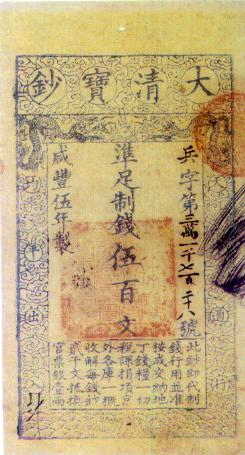 大清寶鈔
天下通行
兵字第
號
準足制錢伍百文
咸豐伍年製
均平出入
此鈔即代制
錢行用並准
按成交納地
丁錢糧一切
稅課捐項京
外各庫一概
收解每錢鈔
貳千文抵換
官票銀壹兩